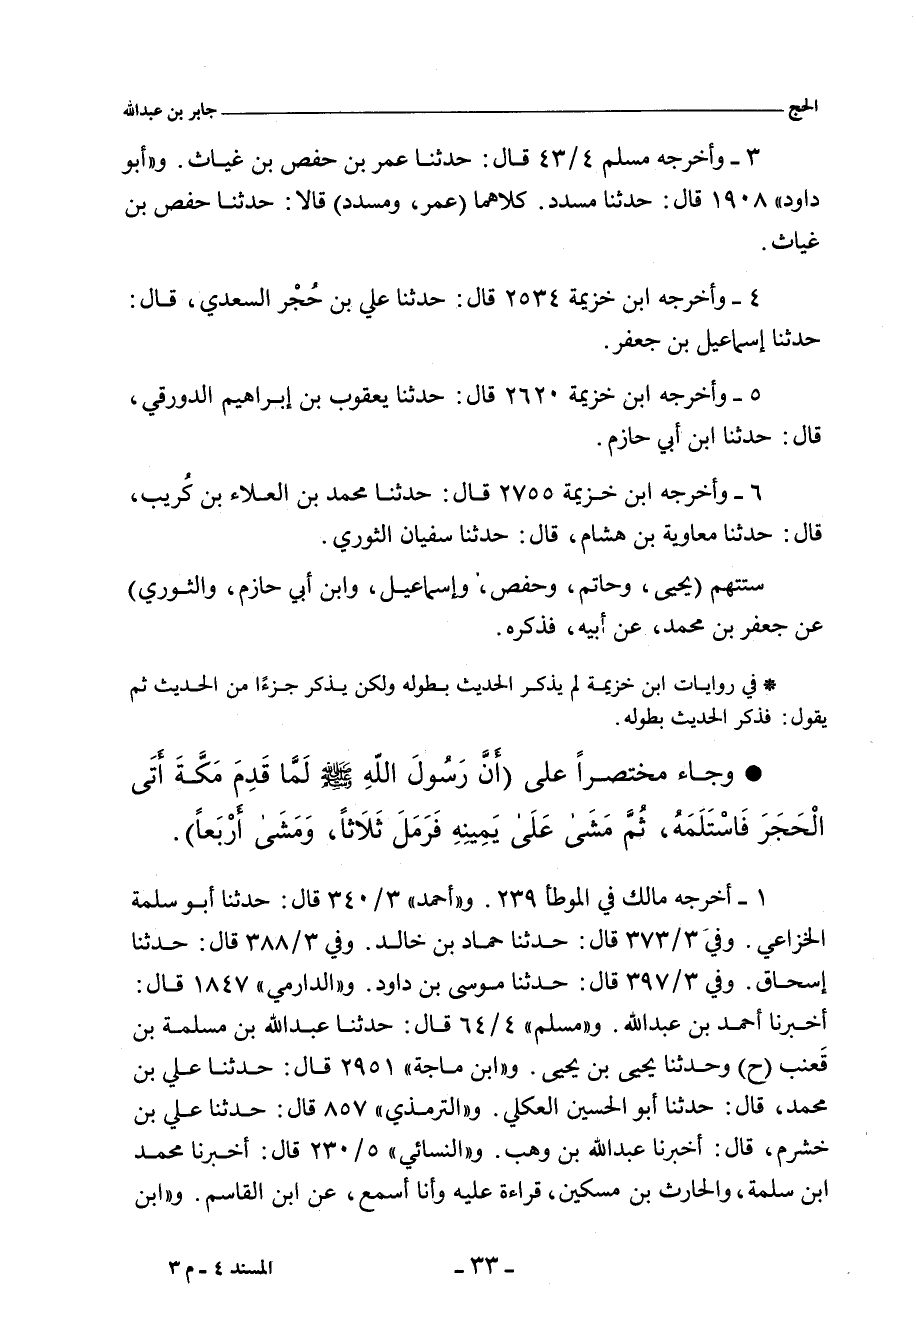 الحج جابر بن عبدالله
٣ ـ وأخرجه مسلم ٤٣/٤ قال: حدثنا عمر بن حفص بن غياث. و«أبو
داود» ١٩٠٨ قال: حدثنا مسدد. كلاهما (عمر، ومسدد) قالا: حدثنا حفص بن
غياث.
٤ ـ وأخرجه ابن خزيمة ٢٥٣٤ قال: حدثنا علي بن حُجْر السعدي، قال:
حدثنا إسماعيل بن جعفر.
٥ ـ وأخرجه ابن خزيمة ٢٦٢٠ قال: حدثنا يعقوب بن إبراهيم الدورقي،
قال: حدثنا ابن أبي حازم.
٦ ـ وأخرجه ابن خزيمة ٢٧٥٥ قال: حدثنا محمد بن العلاء بن كُريب،
قال: حدثنا معاوية بن هشام، قال: حدثنا سفيان الثوري.
ستتهم (يحيى، وحاتم، وحفص، وإسماعيل، وابن أبي حازم، والثوري)
عن جعفر بن محمد، عن أبيه، فذكره.
* في روايات ابن خزيمة لم يذكر الحديث بطوله ولكن يذكر جزءًا من الحديث ثم
يقول: فذكر الحديث بطوله.
● وجاء مختصراً على (أَنَّ رَسُولَ اللّهِ ﷺ لَمَّا قَدِمَ مَكَّةَ أَتَى
الْحَجَرَ فَاسْتَلَمَهُ، ثُمَّ مَشَىٰ عَلَىٰ يَمِينِهِ فَرَمَلَ ثَلَاثاً، وَمَشَىٰ أَرْبَعاً).
١ ـ أخرجه مالك في الموطأ ٢٣٩. و«أحمد» ٣٤٠/٣ قال: حدثنا أبو سلمة
الخزاعي. وفي ٣٧٣/٣ قال: حدثنا حماد بن خالد. وفي ٣٨٨/٣ قال: حدثنا
إسحاق. وفي ٣٩٧/٣ قال: حدثنا موسى بن داود. و«الدارمي» ١٨٤٧ قال:
أخبرنا أحمد بن عبدالله. و«مسلم» ٦٤/٤ قال: حدثنا عبدالله بن مسلمة بن
قَعنب (ح) وحدثنا يحيى بن يحيى. و«ابن ماجة» ٢٩٥١ قال: حدثنا علي بن
محمد، قال: حدثنا أبو الحسين العكلي. و«الترمذي» ٨٥٧ قال: حدثنا علي بن
خشرم، قال: أخبرنا عبدالله بن وهب. و«النسائي» ٢٣٠/٥ قال: أخبرنا محمد
ابن سلمة، والحارث بن مسكين، قراءة عليه وأنا أسمع، عن ابن القاسم. و«ابن
ـ ٣٣ ـ المسند ٤ ـ م ٣